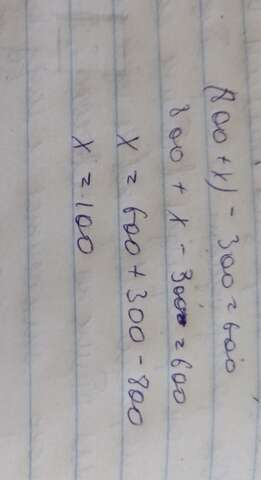 (800 + x) - 300 = 600
800 + x - 300 = 600
x = 600 + 300 - 800
x = 100